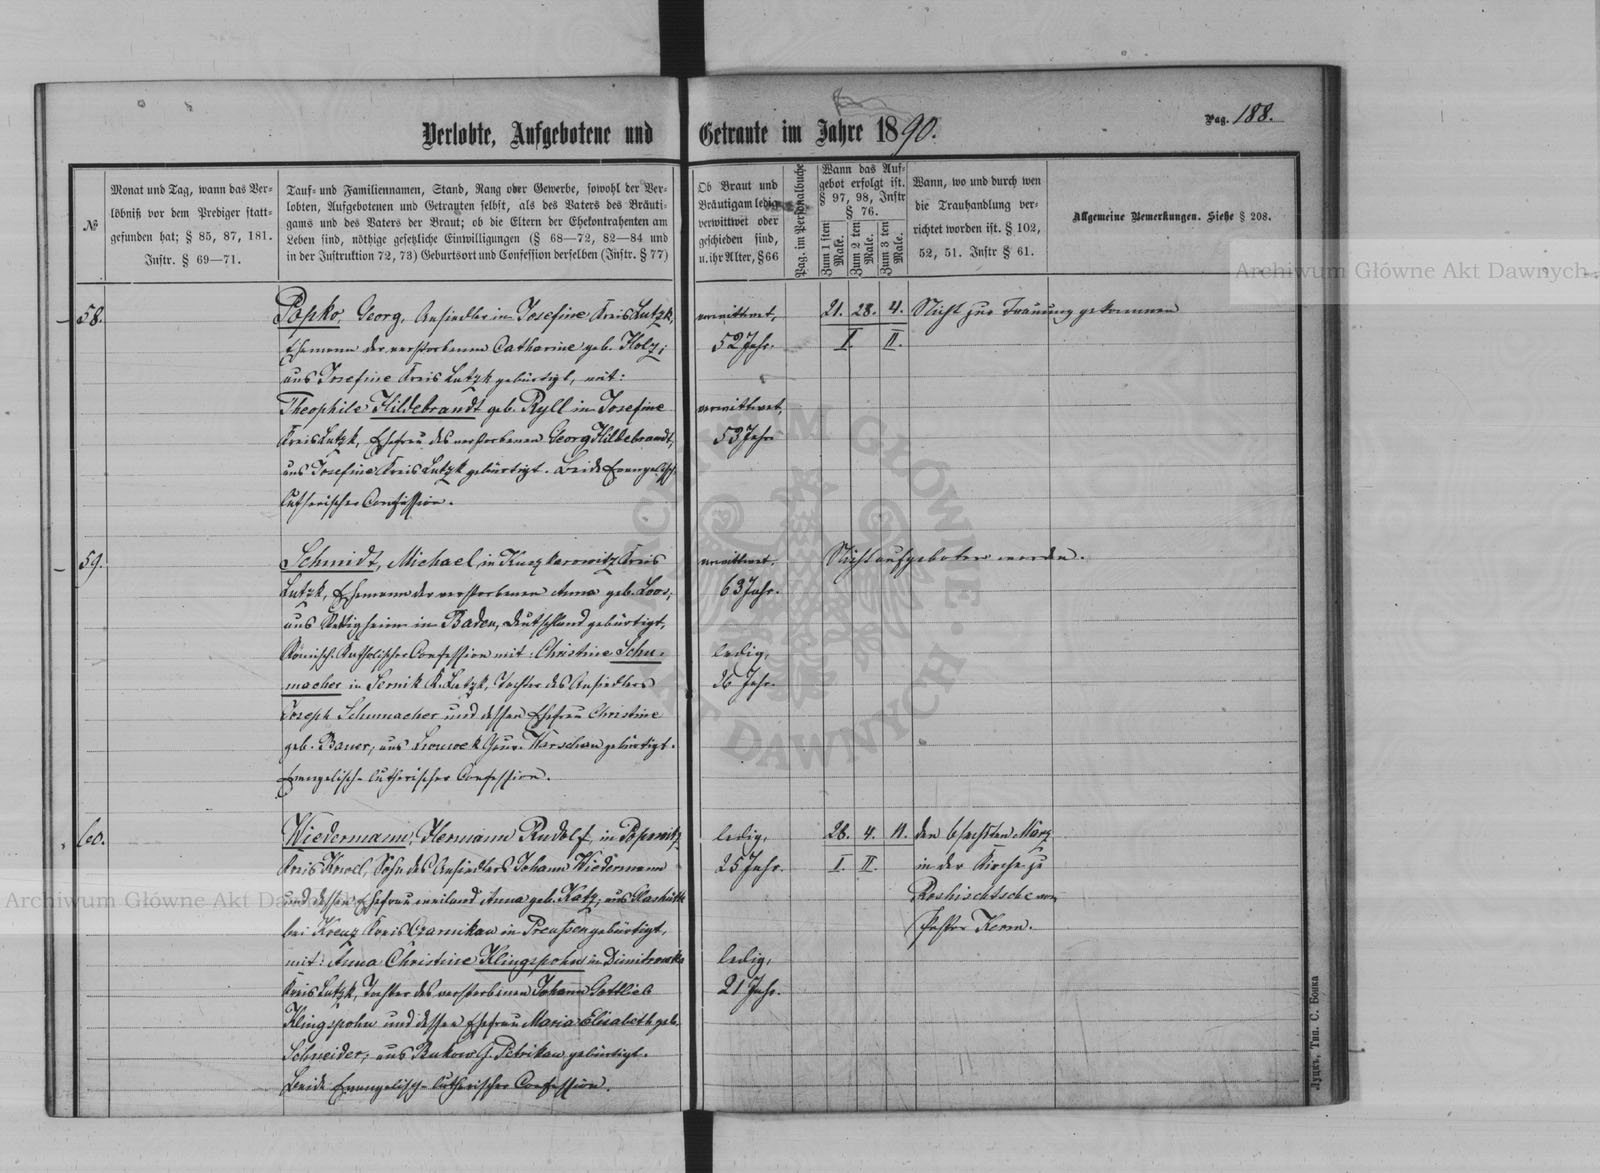 Verlobte, Aufgebotene und Getraute im Jahre 1890.
Pag. 188.
№
Monat und Tag, wann das Ver-
löbniß vor dem Prediger statt-
gefunden hat; § 85, 87, 181.
Instr. § 69—71.
Tauf- und Familiennamen, Stand, Rang oder Gewerbe, sowohl der Ver-
lobten, Aufgebotenen und Getrauten selbst, als des Vaters des Bräuti-
gams und des Vaters der Braut; ob die Eltern der Ehekontrahenten am
Leben sind, nöthige gesetzliche Einwilligungen (§ 68—72, 82—84 und
in der Instruktion 72, 73) Geburtsort und Confession derselben (Instr. § 77)
Ob Braut und
Bräutigam ledig
verwittwet oder
geschieden sind,
u. ihr Alter, § 66
Pag. im Personalbuche
Wann das Auf-
gebot erfolgt ist.
§ 97, 98, Instr
§ 76.
Zum 1 ten Male.
Zum 2 ten Male.
Zum 3 ten Male.
Wann, wo und durch wen
die Trauhandlung ver-
richtet worden ist. § 102,
52, 51. Instr § 61.
Allgemeine Bemerkungen. Siehe § 208.
58.
Popko, Georg, Ansiedler in Josefine Kreis Lutzk,
Ehemann der verstorbenen Catharine geb. Holz;
aus Josefine Kreis Lutzk gebürtigt, mit:
Theophile Hildebrandt geb. Ryll in Josefine
Kreis Lutzk, Ehefrau des verstorbenen Georg Hildebrandt,
aus Josefine Kreis Lutzk gebürtigt. Beide Evangelisch-
lutherischer Confession.
verwittwet,
52 Jahr.
verwittwet,
53 Jahr
21. 28. 4.
I. II.
Nicht zur Trauung gekommen
59.
Schmidt, Michael, in Kuszkarowitz Kreis
Lutzk, Ehemann der verstorbenen Anna geb. Loos;
aus in Baden, Deutschland gebürtigt,
Römisch-Katholischer Confession mit: Christine Schu-
macher in Sernik K. Lutzk, Tochter des Ansiedlers
Joseph Schumacher und dessen Ehefrau Christine
geb. Bauer, aus Gouv. Warschau gebürtigt.
Evangelisch-lutherischer Confession.
verwittwet,
63 Jahr.
ledig,
26 Jahr.
Nicht aufgeboten worden.
60.
Wiedermann, Hermann Rudolf, in Popowitz
Kreis Kowel, Sohn des Ansiedlers Johann Wiedermann
und dessen Ehefrau weiland Anna geb. Katz; aus Glashütte
bei Kreuz Kreis Czarnikau in Preußen gebürtigt,
mit: Anna Christine Klingspohn in Dimitrowka
Kreis Lutzk, Tochter des verstorbenen Johann Gottlieb
Klingspohn und dessen Ehefrau Maria Elisabeth geb.
Schneider, aus Bukow G. Petrikau gebürtigt.
Beide Evangelisch-lutherischer Confession.
ledig,
25 Jahr.
ledig,
21 Jahr.
28. 4. 11.
I. II.
den 6 sechsten März
in der Kirche zu
Roshischtsche von
Pastor Kerm.
Луцкъ, Тип. С. Бонка
Archiwum Główne Akt Dawnych
Archiwum Główne Akt Dawnych
ARCHIWUM GŁÓWNE AKT DAWNYCH